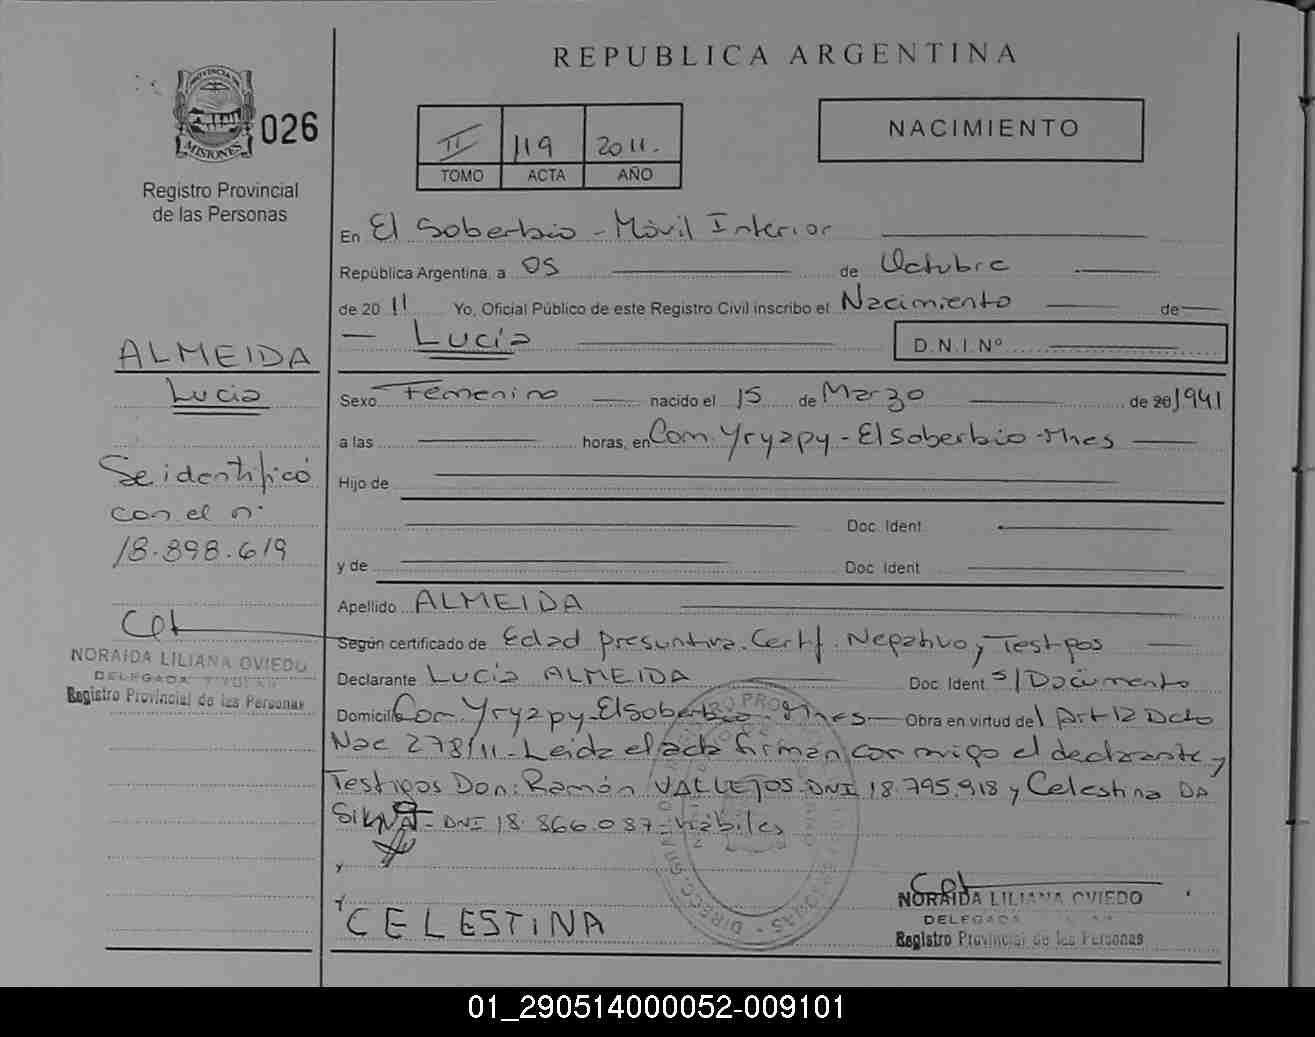 REPUBLICA ARGENTINA
PROVINCIA DE
MISIONES
026
Registro Provincial
de las Personas
II 119 2011.
TOMO ACTA AÑO
NACIMIENTO
En El Soberbio - Móvil Interior
República Argentina, a 05 de Octubre
de 2011 Yo, Oficial Público de este Registro Civil inscribo el Nacimiento de
Lucía D.N.I.Nº
Sexo Femenino nacido el 15 de Marzo de 20 1941
a las horas, en Com. Yryapy - El Soberbio - Mnes
Hijo de
Doc. Ident
y de Doc. Ident
Apellido ALMEIDA
Según certificado de Edad presuntiva. Certf. Negativo y Testigos
Declarante Lucía ALMEIDA Doc. Ident s/Documento
Domicilio Com. Yryapy - El Soberbio - Mnes Obra en virtud del Art 12 Dcto
Nac 278/11 - Leida el acta firman conmigo el declarante y
Testigos Don: Ramón VALLEJOS - DNI 18.795.918 y Celestina DA
SILVA - DNI 18.866.087 - hábiles
y
y
CELESTINA
NORAIDA LILIANA OVIEDO
DELEGADA
Registro Provincial de las Personas
ALMEIDA
Lucia
Se identificó
con el nº
18.898.619
NORAIDA LILIANA OVIEDO
DELEGADA TITULAR
Registro Provincial de las Personas
01_290514000052-009101